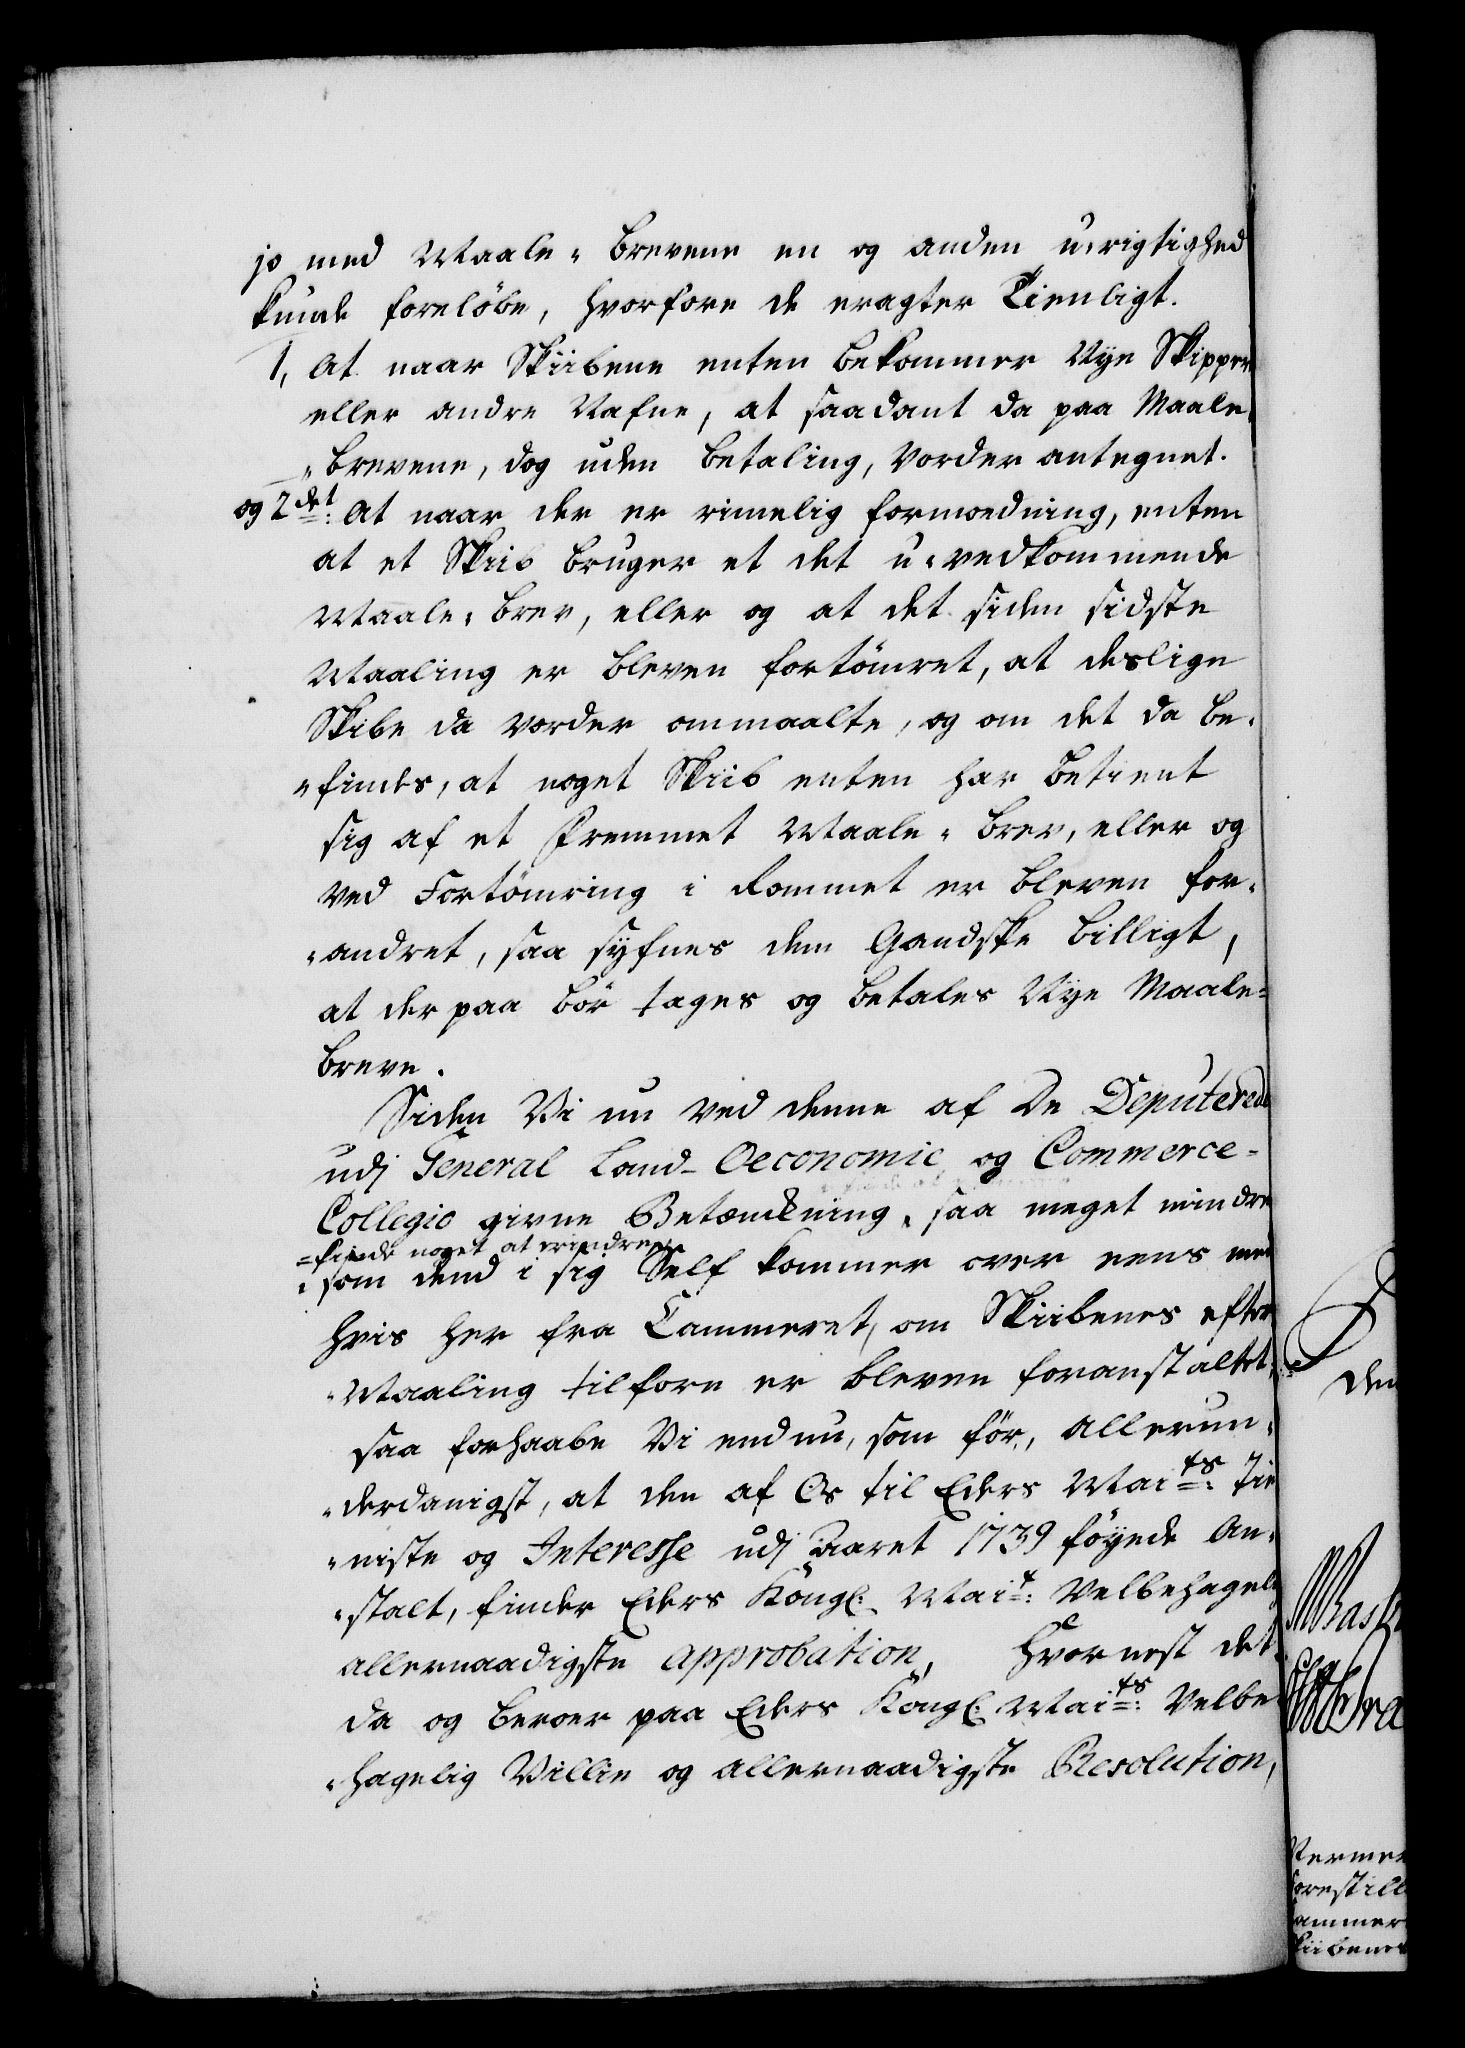 jo med Maale-Brevene en og anden u-rigtighed
kunde foreløbe, hvorfore de eragter Tienligt.
1, At naar Skiibene enten bekommer Nye Skippere
eller andre Nafne, at saadant da paa Maale-
-brevene, dog uden betaling, vorder antegnet.
og 2det: At naar der er rimelig formodning, enten
at et Skiib bruger et det u-vedkommende
Maale-brev, eller og at det siden sidste
Maaling er bleven fortömret, at deslige
Skibe da vorder ommaalte, og om det da be-
-findes, at noget Skiib enten har betient
sig af et fremmet Maale-brev, eller og
ved Fortömring i Rommet er bleven for-
-andret, saa syfnes dem Gandske billigt,
at der paa bör tages og betales Nye Maale-
breve.
Siden Vi nu ved denne af De Deputerede
udj General Land-Oeconomie og Commerce-
Collegio givne Betænkning, saa meget mindre
-finde noget at erindre,
som dend i sig Self kommer over eens med
hvis her fra Cammeret, om Skiibenes efter
-Maaling tilforn er bleven foranstaltet,
saa forhaabe Vi endnu, som för, allerun-
-derdanigst, at den af Os til Eders Maits: Tie
-niste og Interesse udj Aaret 1739 föyede An-
-stalt, finder Eders Kongl: Mait: Velbehagelig
allernaadigste approbation, Hvornest det
da og beroer paa Eders Kongl: Maits: Velbe-
-hagelig Villie og allernaadigste Resolution,
den